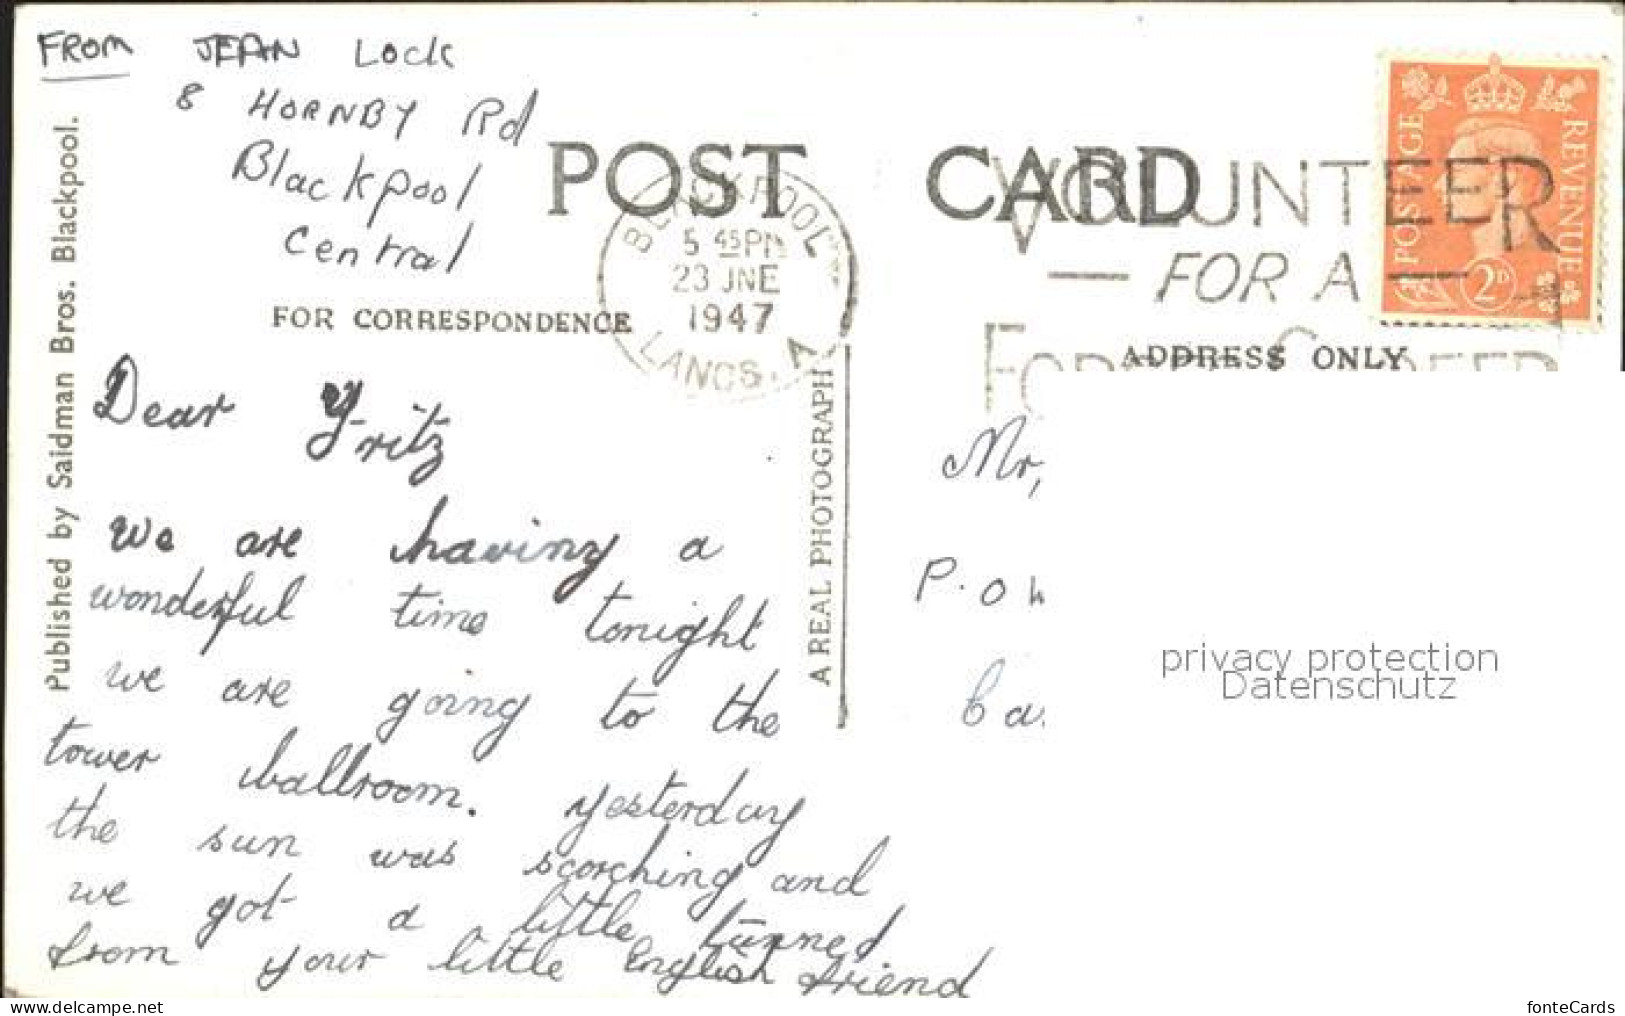 FROM JEAN Lock
8 HORNBY Rd
Blackpool
Central
POST CARD
BLACKPOOL
5 45PM
23 JNE
1947
LANCS. A
VOLUNTEER
— FOR A —
POSTAGE
REVENUE
2D
FOR CORRESPONDENCE
ADDRESS ONLY
Published by Saidman Bros. Blackpool.
A REAL PHOTOGRAPH
Dear Fritz
We are having a
wonderful time tonight
we are going to the
tower ballroom. yesterday
the sun was scorching and
we got a little tanned
from your little English friend
Mr,
P.O
privacy protection
Datenschutz
fonteCards